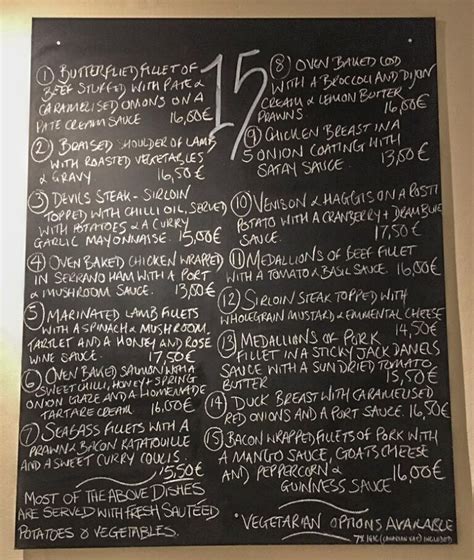 15
① BUTTERFLIED FILLET OF
BEEF STUFFED WITH PATE &
CARAMELISED ONIONS ON A
PATE CREAM SAUCE 16,00€
② BRAISED SHOULDER OF LAMB
WITH ROASTED VEGETABLES
& GRAVY 16,50€
③ DEVILS STEAK - SIRLOIN
TOPPED WITH CHILLI OIL, SERVED
WITH POTATOES & A CURRY
GARLIC MAYONNAISE. 15,00€
④ OVEN BAKED CHICKEN WRAPPED
IN SERRANO HAM WITH A PORT
& MUSHROOM SAUCE. 13,00€
⑤ MARINATED LAMB FILLETS
WITH A SPINACH & MUSHROOM
TARTLET AND A HONEY AND ROSE
WINE SAUCE. 17,50€
⑥ OVEN BAKED SALMON WITH A
SWEET CHILLI, HONEY & SPRING
ONION GLAZE AND A HOMEMADE
TARTARE CREAM 16,00€
⑦ SEABASS FILLETS WITH A
PRAWN & BACON RATATOUILLE
AND A SWEET CURRY COULIS.
15,50€
MOST OF THE ABOVE DISHES
ARE SERVED WITH FRESH SAUTEED
POTATOES & VEGETABLES.
⑧ OVEN BAKED COD
WITH A BROCCOLI AND DIJON
CREAM & LEMON BUTTER
PRAWNS 16,00€
⑨ CHICKEN BREAST IN A
ONION COATING WITH
SATAY SAUCE. 13,50€
⑩ VENISON & HAGGIS ON A ROSTI
POTATO WITH A CRANBERRY + DRAMBUIE
SAUCE. 17,50€
⑪ MEDALLIONS OF BEEF FILLET
WITH A TOMATO & BASIL SAUCE. 16,00€
⑫ SIRLOIN STEAK TOPPED WITH
WHOLEGRAIN MUSTARD & EMMENTAL CHEESE
14,50€
⑬ MEDALLIONS OF PORK
FILLET IN A STICKY JACK DANELS
SAUCE WITH A SUNDRIED TOMATO
BUTTER 15,50€
⑭ DUCK BREAST WITH CARAMELISED
RED ONIONS AND A PORT SAUCE. 16,50€
⑮ BACON WRAPPED FILLETS OF PORK WITH
A MANGO SAUCE, GOATS CHEESE
AND PEPPERCORN & 16,00€
GUINNESS SAUCE
VEGETARIAN OPTIONS AVAILABLE
7% IGIC (CANARIAN VAT) INCLUDED